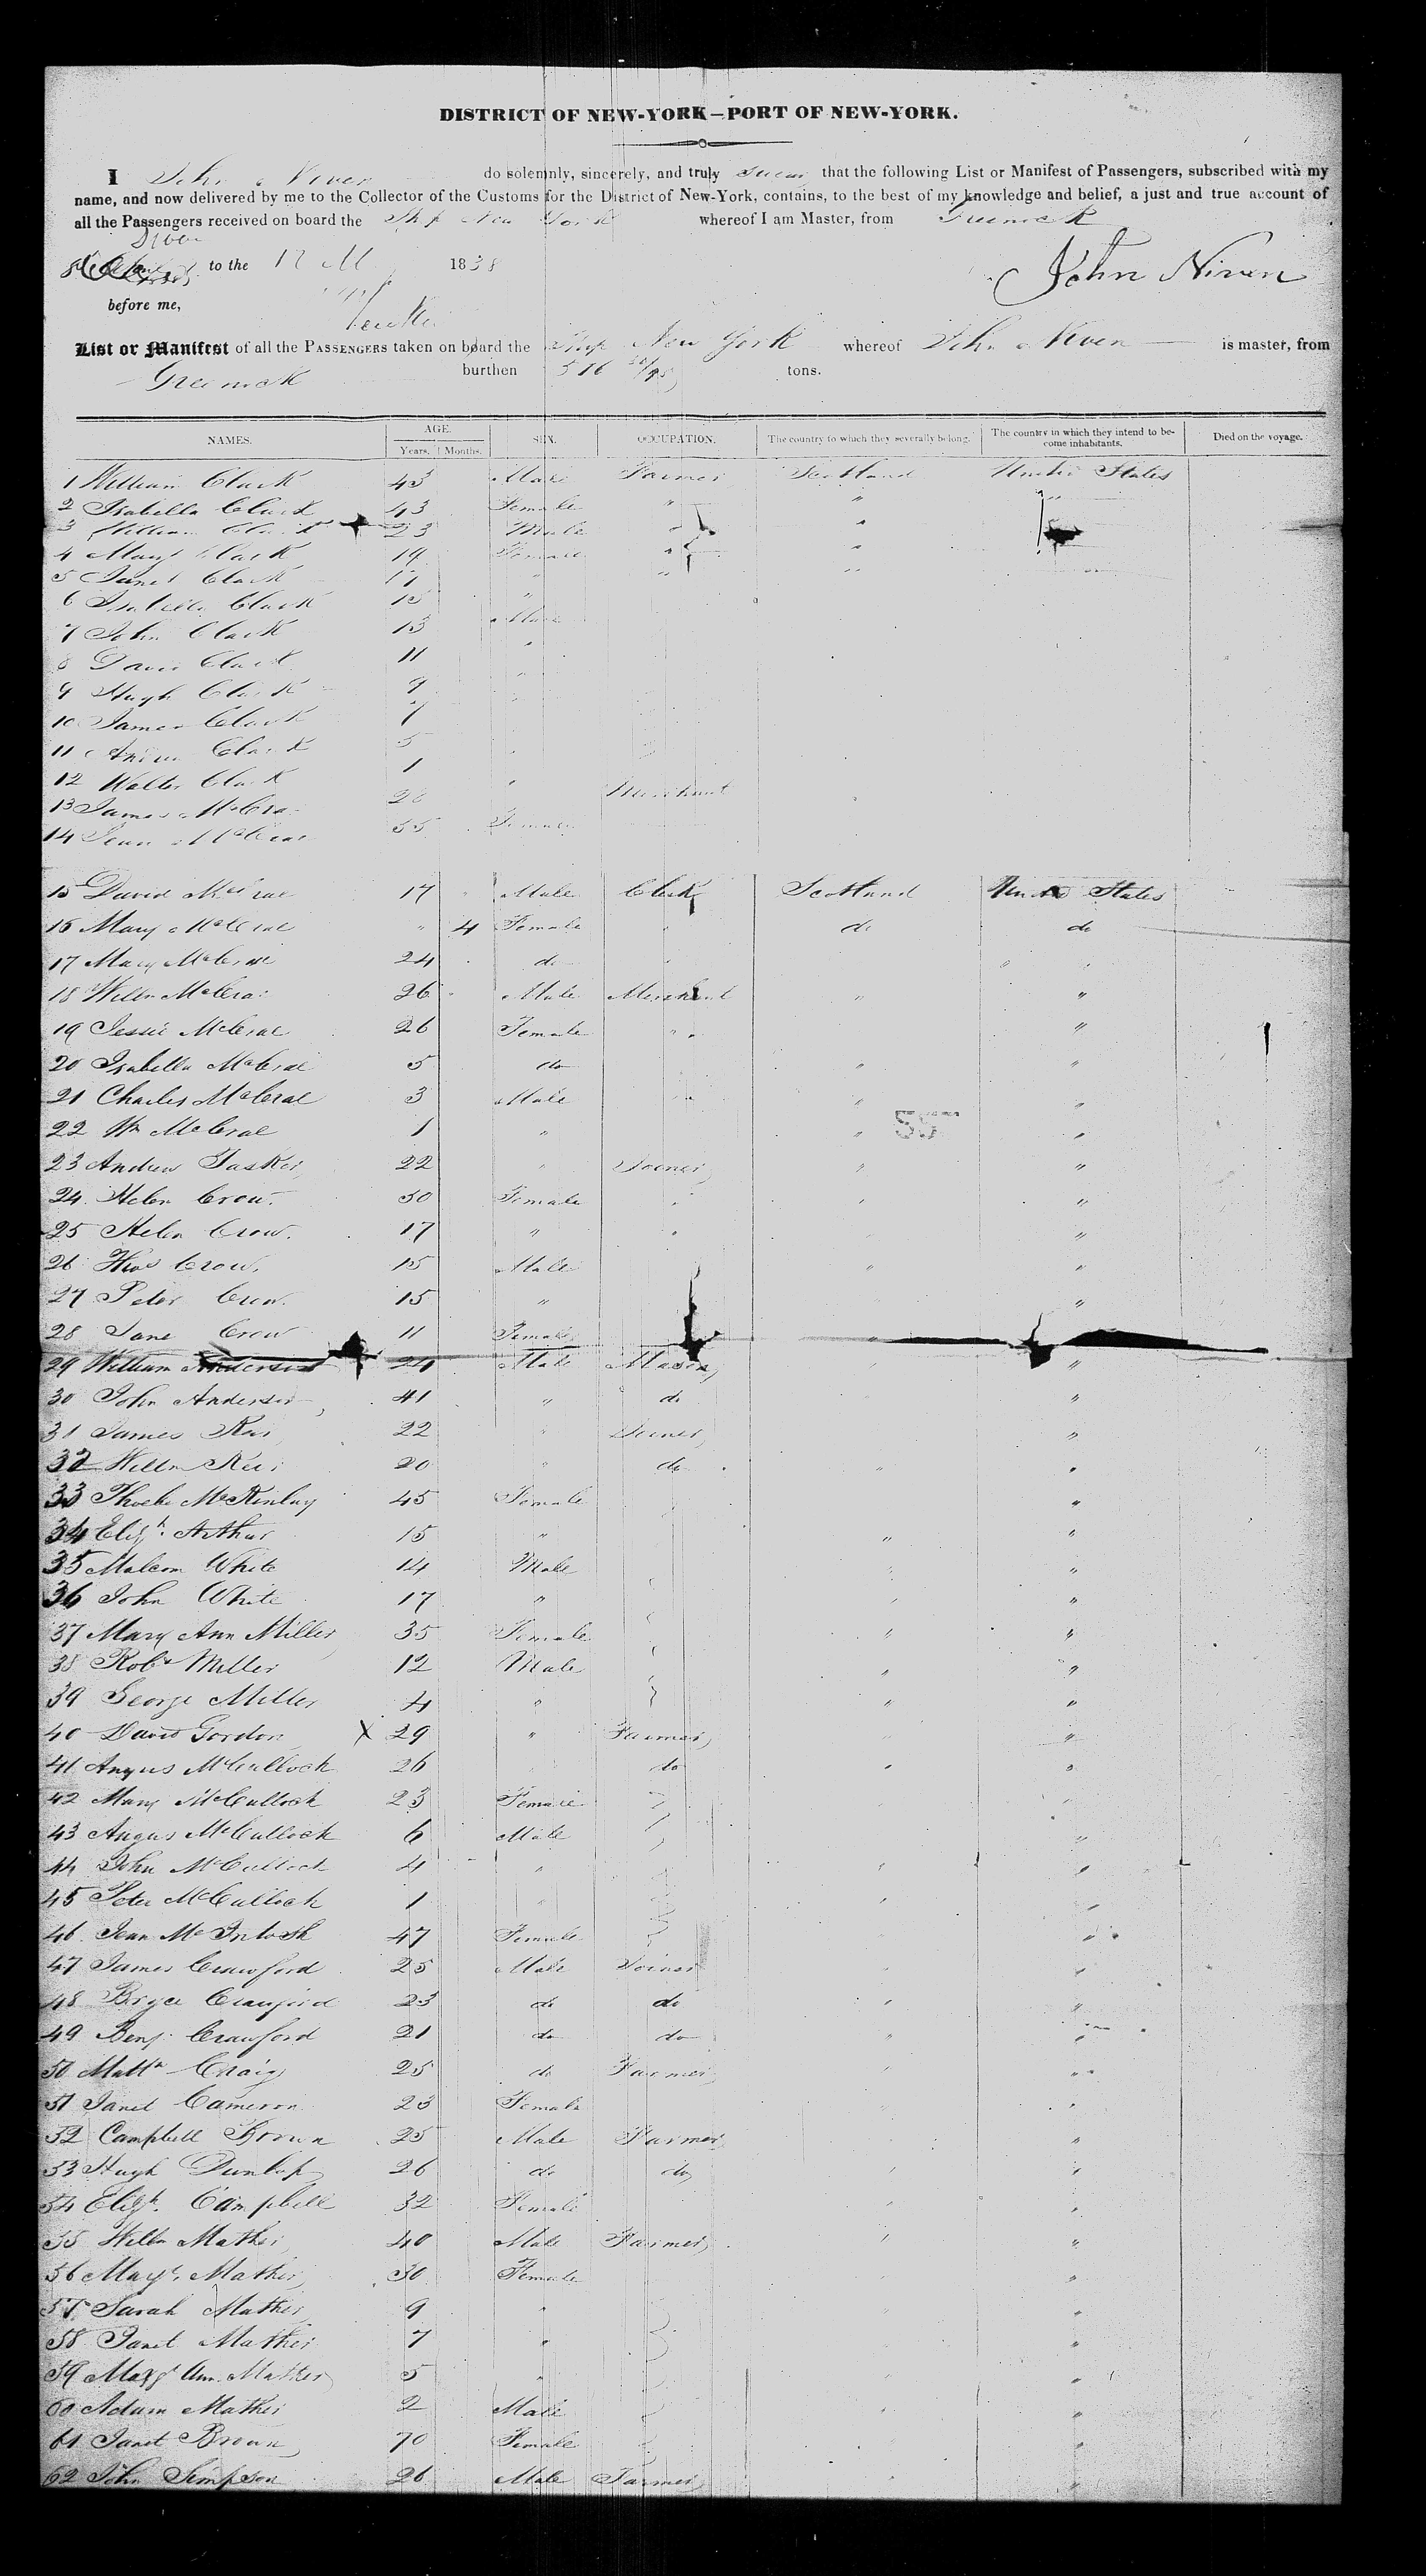 DISTRICT OF NEW-YORK—PORT OF NEW-YORK.
I John Niven do solemnly, sincerely, and truly swear that the following List or Manifest of Passengers, subscribed with my
name, and now delivered by me to the Collector of the Customs for the District of New-York, contains, to the best of my knowledge and belief, a just and true account of
all the Passengers received on board the Ship New York whereof I am Master, from Greenock
Sworn
to the 12 1838
John Niven
before me,
List or Manifest of all the PASSENGERS taken on board the Ship New York whereof John Niven is master, from
Greenock burthen 516 tons.
NAMES. AGE. SEX. OCCUPATION. The country to which they severally belong. The country in which they intend to be-
come inhabitants. Died on the voyage.
Years. Months.
1 William Clark 43 Male Farmer Scotland United States
2 Isabella Clark 43 Female " " "
3 William Clark 23 Male " "
4 Mary Clark 19 Female " "
5 Janet Clark 17 " " " "
6 Isabella Clark 15 "
7 John Clark 13 Male
8 David Clark 11 "
9 Hugh Clark 9 "
10 James Clark 7
11 Clark 5 "
12 Walter Clark 1 "
13 James McCrae 28 Merchant "
14 Jean McCrae 35 Female
15 David McCrae 17 Male Clerk Scotland United States
16 Mary McCrae " 4 Female " do do
17 Mary McCrae 24 do " "
18 Willm McCrae 26 Male Merchant " "
19 Jessie McCrae 26 Female " "
20 Isabella McCrae 5 do " "
21 Charles McCrae 3 Male " " "
22 Wm McCrae 1 " " "
55
23 Andrew Tasker 22 " Joiner " "
24 Helen Crow 30 Female " " "
25 Helen Crow. 17 " " " "
26 Thos Crow. 15 Male " "
27 Peter Crow. 15 " "
28 Jane Crow 11 Female "
29 William Anderson 24 Male Mason " "
30 John Anderson 41 " do "
31 James Ker 22 " Joiner "
32 Willm Ker 20 " do " "
33 Phoebe McKinlay 45 Female "
34 Elizh. Arthur 15 " " "
35 Malcom White 14 Male " "
36 John White 17 " " "
37 Mary Ann Miller 35 Female " "
38 Robt Miller 12 Male " "
39 George Miller 4 " " "
40 David Gordon X 29 " Farmer "
41 Angus McCullock 26 do " "
42 Mary McCullock 23 Female "
43 Angus McCullock 6 Male "
44 John McCullock 4 " " "
45 Peter McCullock 1 " " "
46 Jean McIntosh 47 Female "
47 James Crawford 25 Male Joiner " "
48 Bryce Crawford 23 do do " "
49 Benj. Crawford 21 do do " "
50 Mattw Craig 25 do Farmer " "
51 Janet Cameron 23 Female "
52 Campbell Brown 25 Male Farmer "
53 Hugh Dunlop 26 do do " "
54 Elizh. Campbell 32 Female " "
55 Willm Mather 40 Male Farmer " "
56 Mather 30 Female "
57 Sarah Mather 9 " "
58 Janet Mather 7 " "
59 Margt Ann Mather 5 " "
60 Adam Mather 2 Male " "
61 Janet Brown 70 Female "
62 John Simpson 26 Male Farmer "